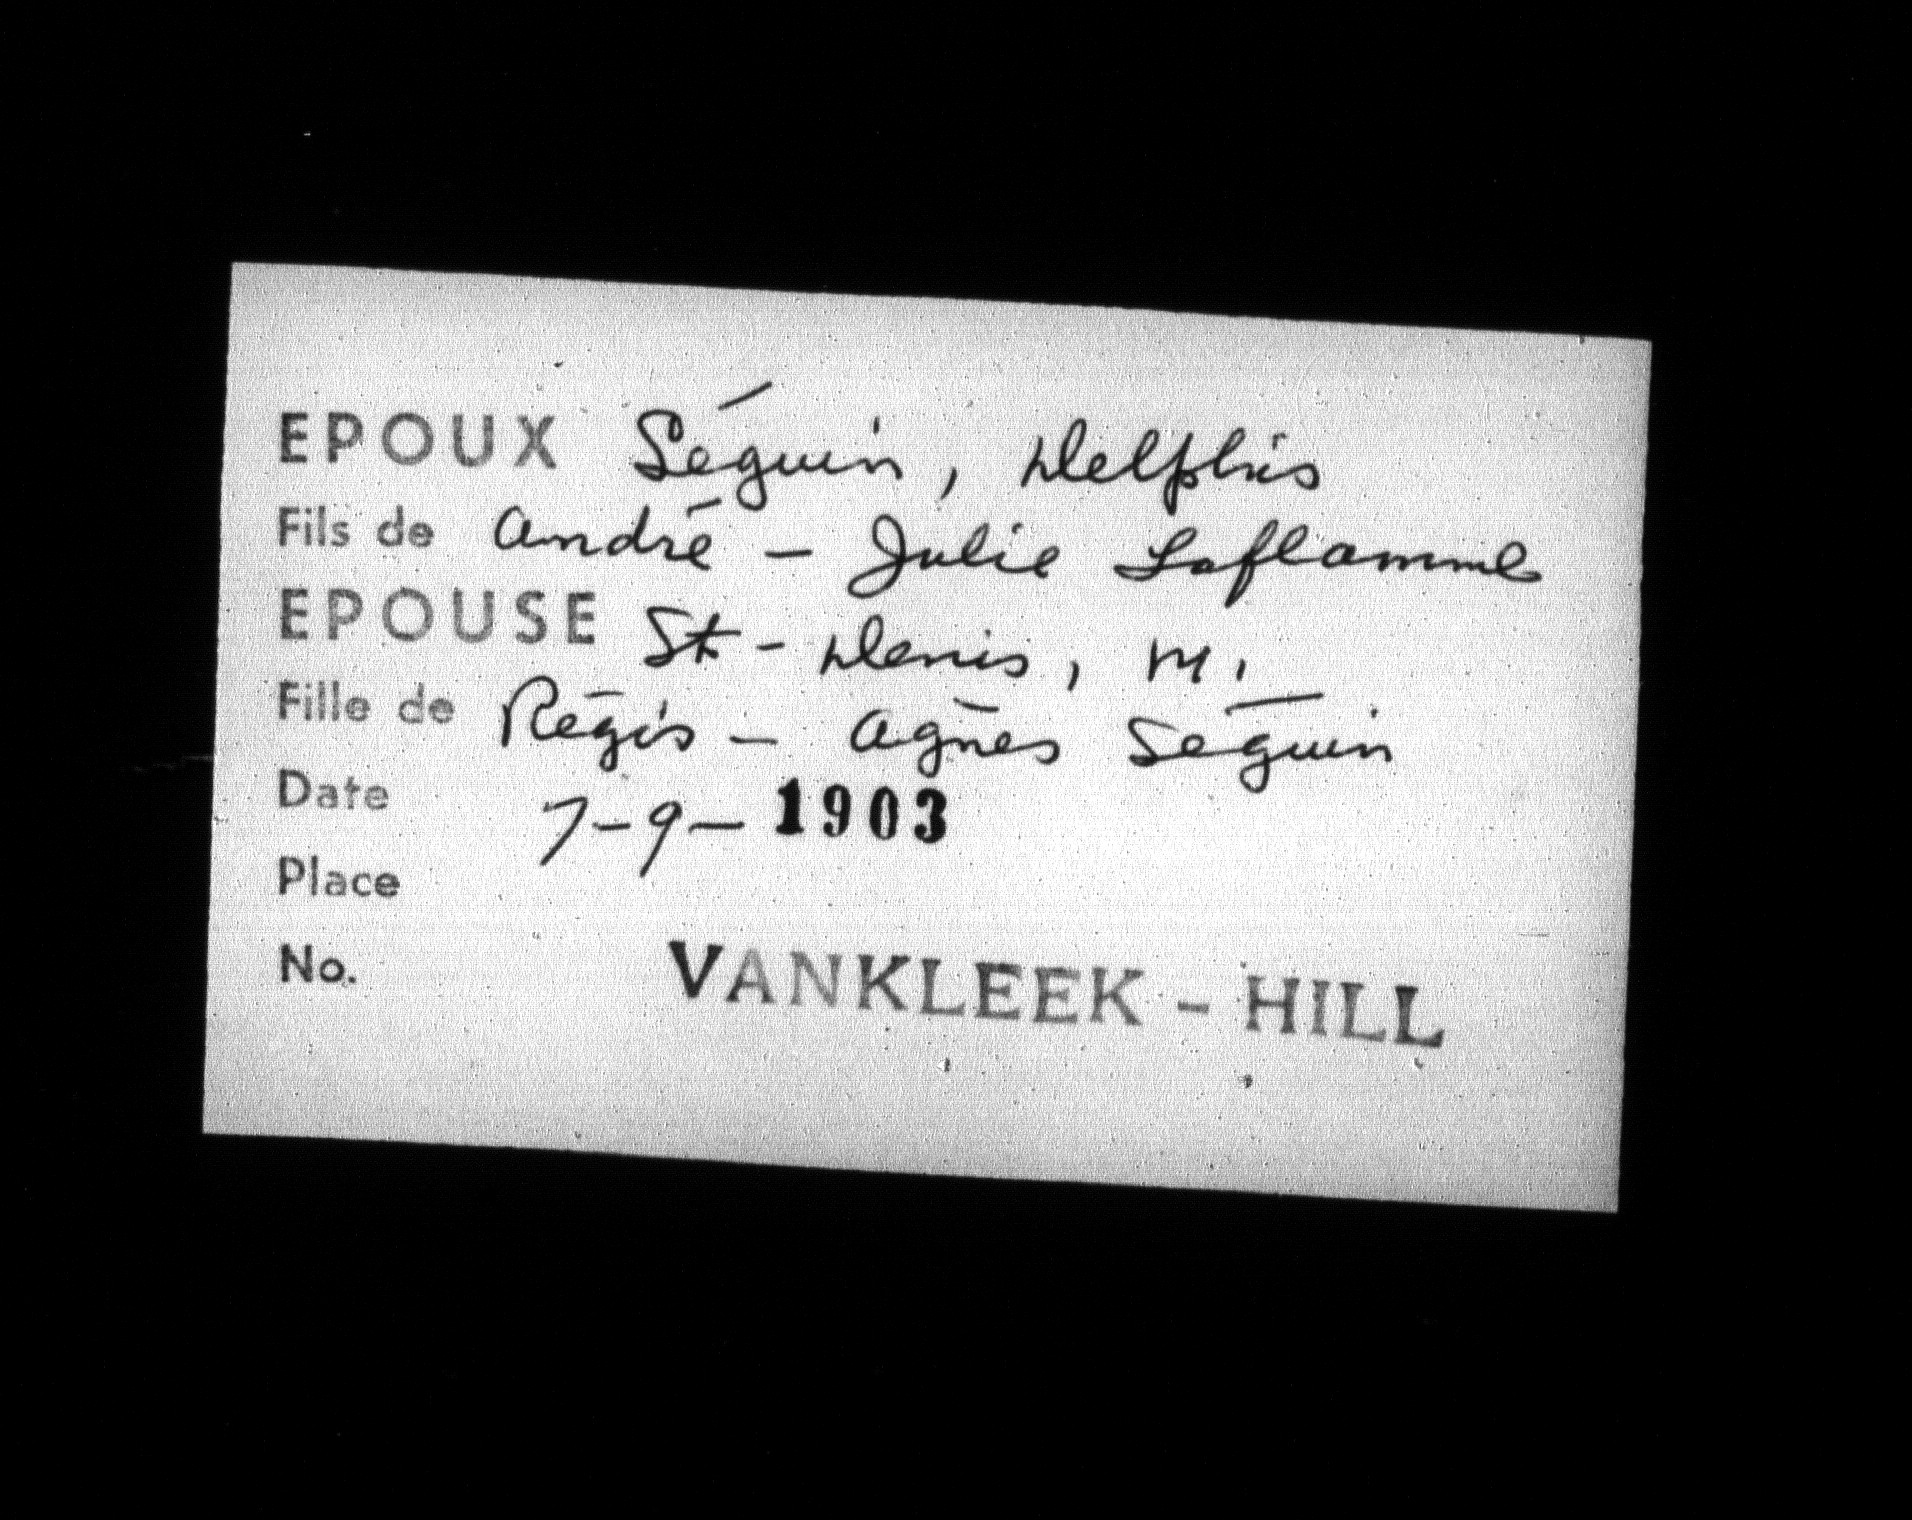 EPOUX Séguin, Delphis
Fils de André - Julie Laflamme
EPOUSE St-Denis, M.
Fille de Régis - Agnès Séguin
Date 7-9-1903
Place
No. VANKLEEK-HILL